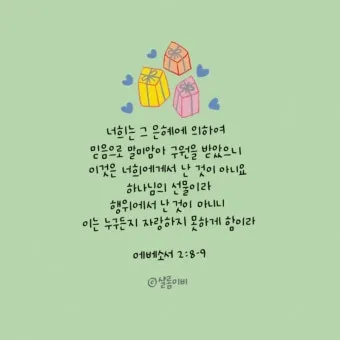 너희는 그 은혜에 의하여
믿음으로 말미암아 구원을 받았으니
이것은 너희에게서 난 것이 아니요
하나님의 선물이라
행위에서 난 것이 아니니
이는 누구든지 자랑하지 못하게 함이라
에베소서 2:8-9
©샬롬이비